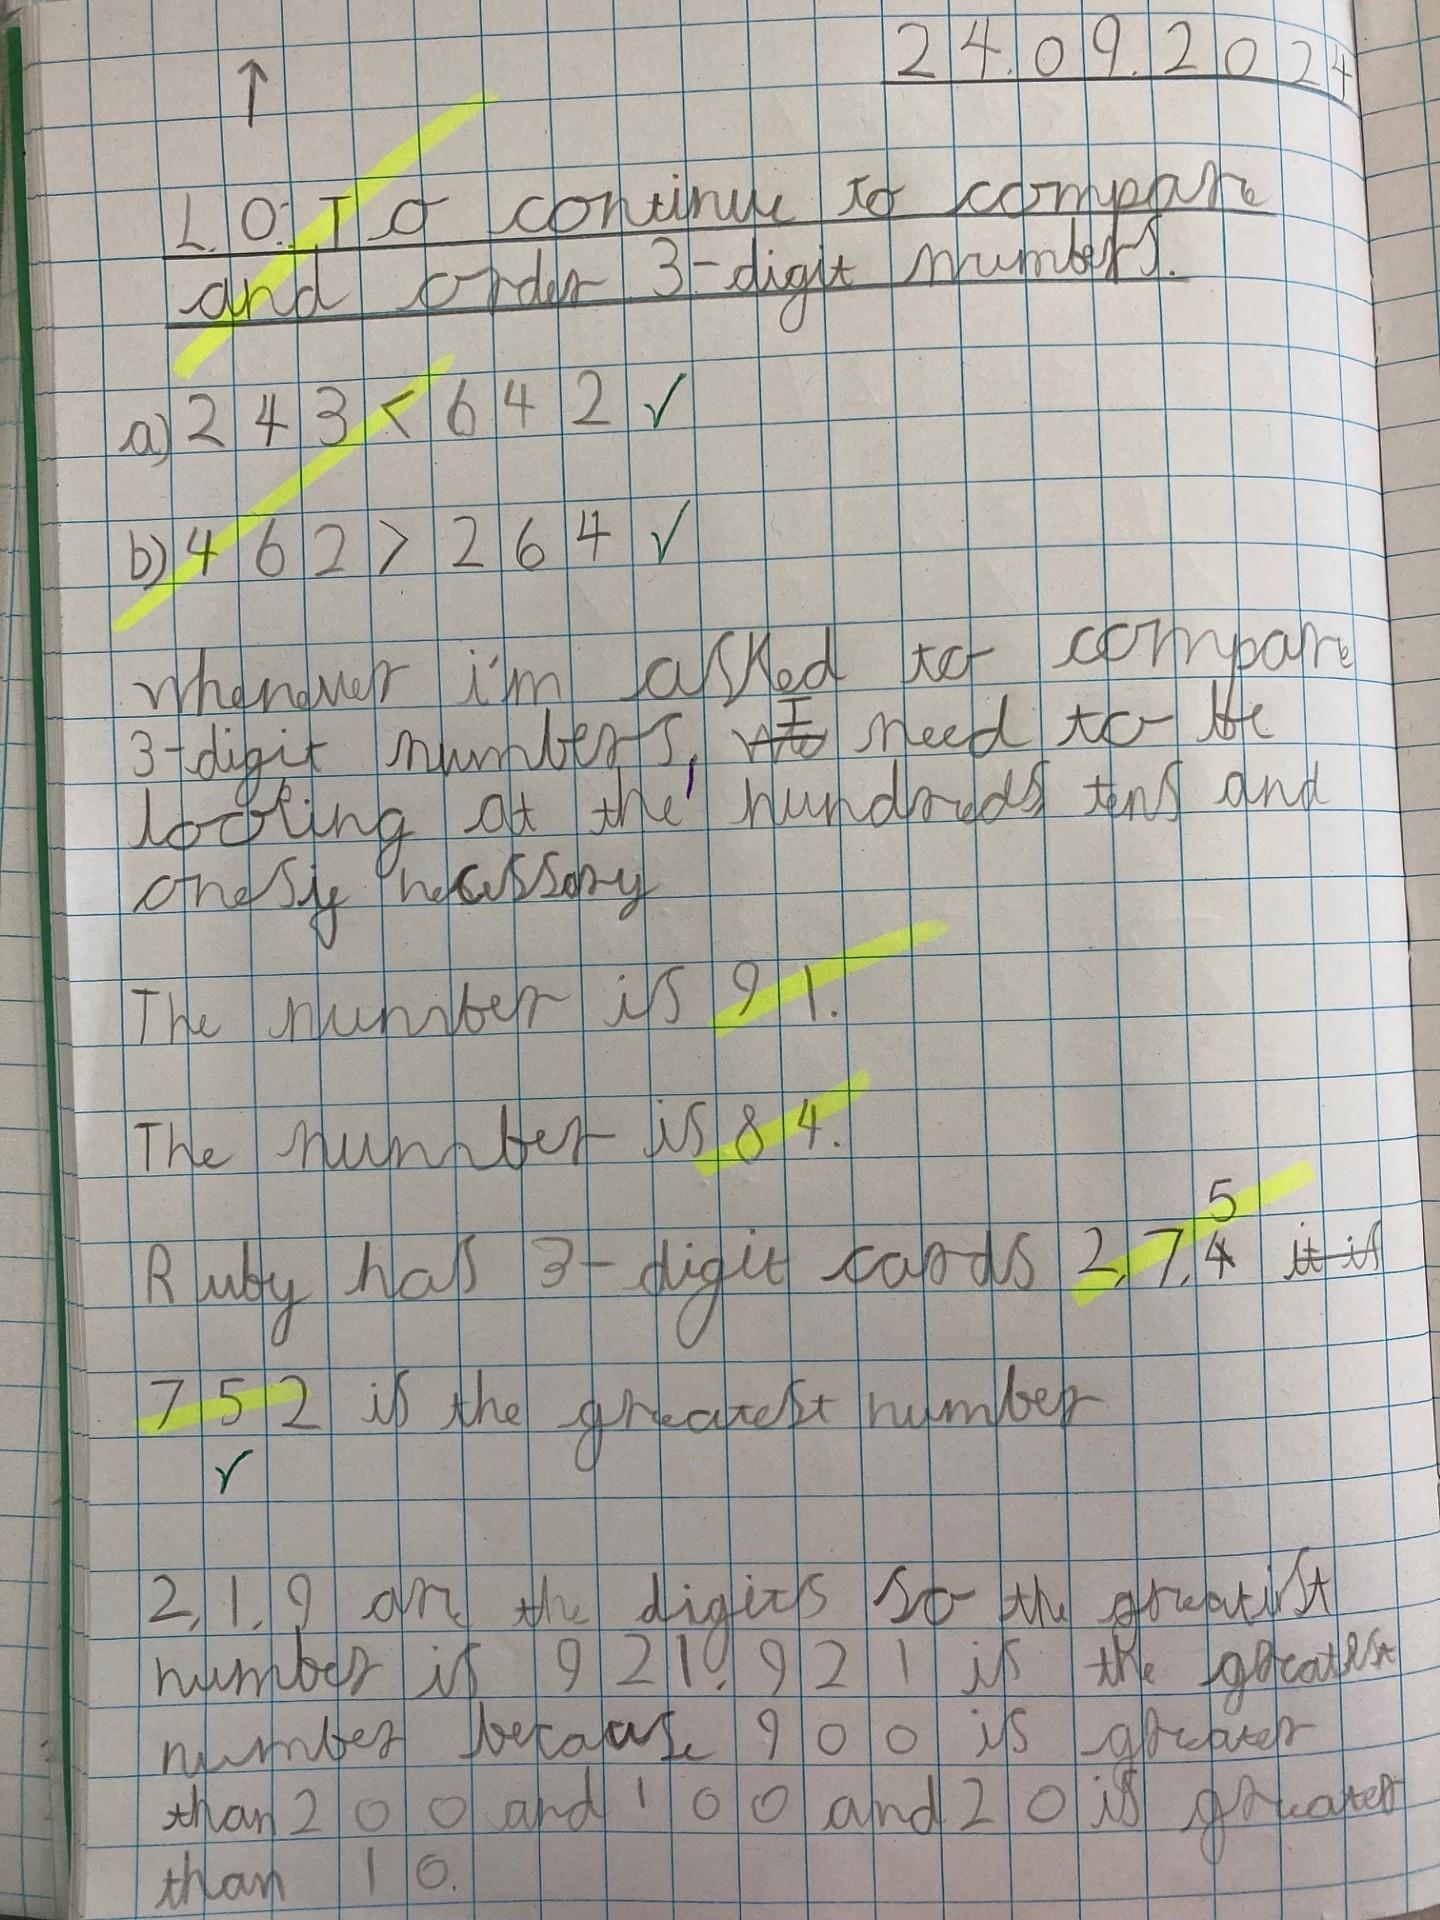 24.09.2024
L.O: To continue to compare
and order 3-digit numbers.
a) 243 < 642 ✓
b) 462 > 264 ✓
whenever i'm asked to compare
3-digit numbers, I need to be
looking at the hundreds tens and
ones if necessary
The number is 91.
The number is 84.
Ruby has 3-digit cards 2,7,5 it is
752 is the greatest number
✓
2,1,9 are the digits so the greatist
number is 921. 921 is the greatest
number because 900 is greater
than 200 and 100 and 20 is greater
than 10.